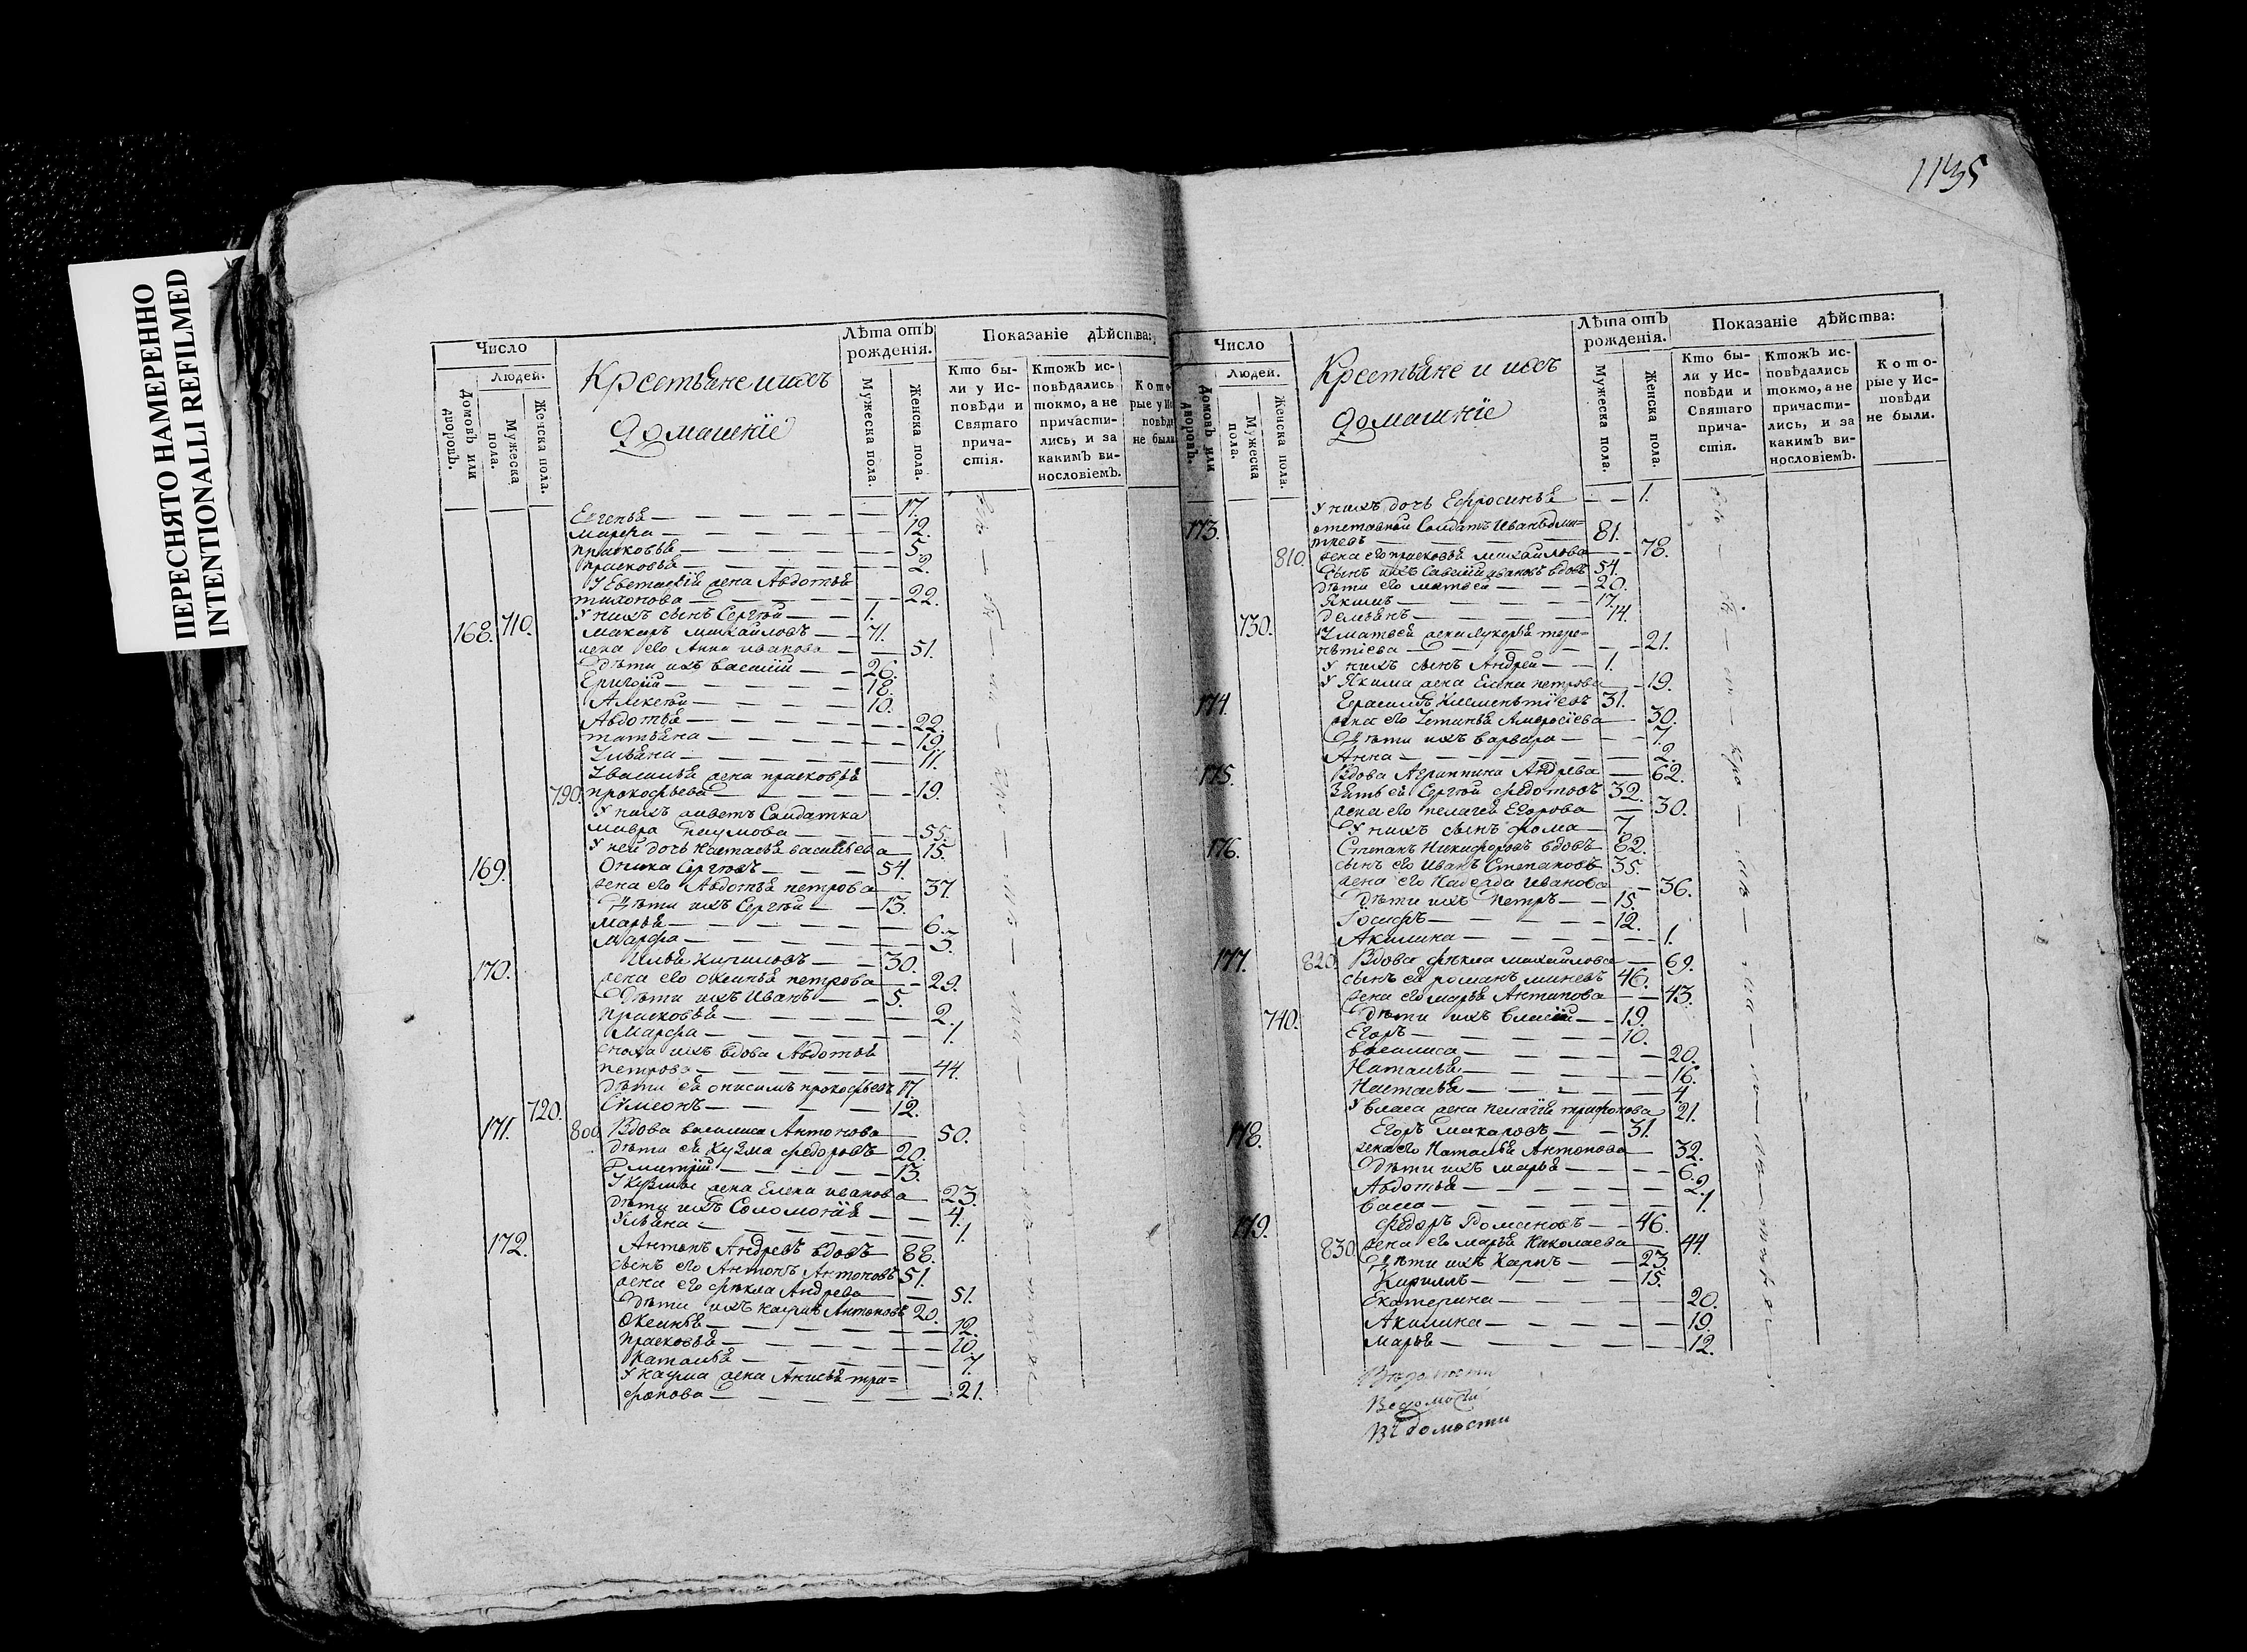 ПЕРЕСНЯТО НАМЕРЕННО
INTENTIONALLI REFILMED
Число
Людей.
Домовъ или дворовъ.
Мужеска пола.
Женска пола.
Крестьяне и ихъ
Домашніе
Лѣта отъ рожденія.
Мужеска пола.
Женска пола.
Показаніе дѣйства:
Кто были у Исповѣди и Святаго причастія.
Ктожъ исповѣдались токмо, а не причастились, и за какимъ винословіемъ.
Евгенья 17.
Марфа 12.
Прасковья 5.
Прасковья 2.
жена Авдотья
Тихонова 22.
У нихъ сынъ Сергѣй 1.
168. 710. Макаръ Михайловъ 71.
жена его Анна Иванова 51.
Дѣти ихъ Василій 26.
Григорій 18.
Алексѣй 10.
Авдотья 22.
Татьяна 19.
Ульяна 11.
У Василья жена Прасковья
790. Прокофьева 19.
У нихъ живетъ Солдатка
Мавра Наумова 55.
У ней дочь Настасья Васильева 15.
169. Сергѣевъ 54.
жена его Авдотья Петрова 37.
Дѣти ихъ Сергѣй 13.
Марья 6.
Марфа 3.
170. Илья 30.
жена его Оксинья Петрова 29.
Дѣти ихъ Иванъ 5.
Прасковья 2.
Марфа 1.
сноха ихъ вдова Авдотья
Петрова 44.
Дѣти ея Онисимъ Прокофьевъ 17.
720. Сѷмеонъ 12.
171. 800. Вдова Василиса Антонова 50.
Дѣти ея Кузма Федоровъ 20.
Дмитрій 13.
У Кузмы жена Елена Иванова 23.
Дѣти ихъ Соломонія 4.
Ульяна 1.
172. Антонъ Андревъ вдовъ 88.
сынъ его Антонъ Антоновъ 51.
жена его Фекла Андрева 51.
Дѣти ихъ Наумъ Антоновъ 20.
Оксинья 12.
Прасковья 10.
Наталья 7.
У Наума жена Анисья Три=
фонова 21.
1135
Число
Людей.
Домовъ или дворовъ.
Мужеска пола.
Женска пола.
Крестьяне и ихъ
Домашніе
Лѣта отъ рожденія.
Мужеска пола.
Женска пола.
Показаніе дѣйства:
Кто были у Исповѣди и Святаго причастія.
Ктожъ исповѣдались токмо, а не причастились, и за какимъ винословіемъ.
Которые у Исповѣди не были.
У нихъ дочь Ефросинья 1.
173. отставной Солдатъ Иванъ Дми=
тревъ 81.
810. жена его Прасковья Михайлова 78.
Сынъ ихъ Савелій Ивановъ вдовъ 54.
Дѣти его Матвей 20.
Якимъ 17.
730. Демьянъ 14.
У Матвея жена Лукерья Тере=
нтіева 21.
У нихъ сынъ Андрей 1.
У Якима жена Елена Петрова 19.
174. Герасимъ Клементіевъ 31.
жена его Устинья Амвросіева 30.
Дѣти ихъ Варвара 7.
Анна 2.
175. Вдова Агриппина Андрева 62.
Зять ея Сергѣй Федотовъ 32.
жена его Пелагея Егорова 30.
У нихъ сынъ Фома 7.
176. Степанъ Никифоровъ вдовъ 82.
сынъ его Иванъ Степановъ 35.
жена его Надежда Иванова 36.
Дѣти ихъ Петръ 15.
Іосифъ 12.
Акилина 1.
177. 820. Вдова Фекла Михайлова 69.
сынъ ея Романъ Миневъ 46.
жена его Марья Антипова 43.
740. Дѣти ихъ Власій 19.
Егоръ 10.
Василиса 20.
Наталья 16.
Настасья 4.
У Власа жена Пелагія Трифонова 21.
178. Егоръ Макаровъ 31.
жена его Наталья Антонова 32.
Дѣти ихъ Марья 6.
Авдотья 2.
Васса 1.
179. Федоръ Романовъ 46.
830. жена его Марья Николаева 44.
Дѣти ихъ Карпъ 23.
Кириллъ 15.
Екатерина 20.
Акилина 19.
Марья 12.
Ведомости
Ведомости
Вѣдомости